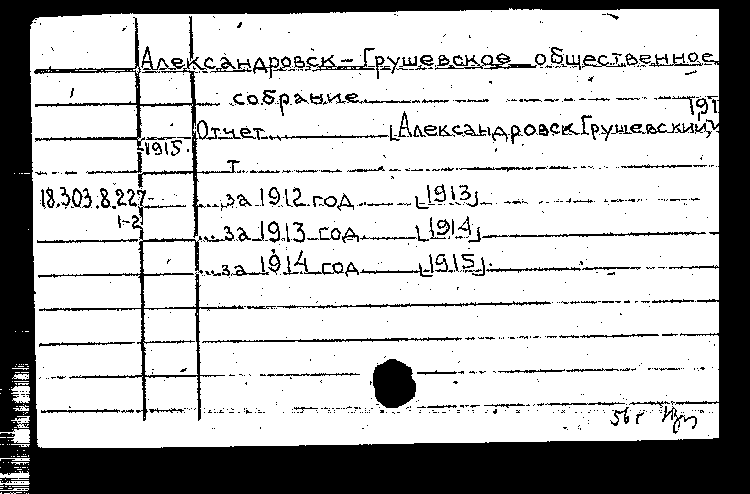 Александровск-Грушевское общественное
собрание
191
Отчет [Александровск Грушевский,
-1915.
т
18.303.8.227 ... за 1912 год [1913]
1-2
... за 1913 год [1914]
... за 1914 год [1915].
56 г